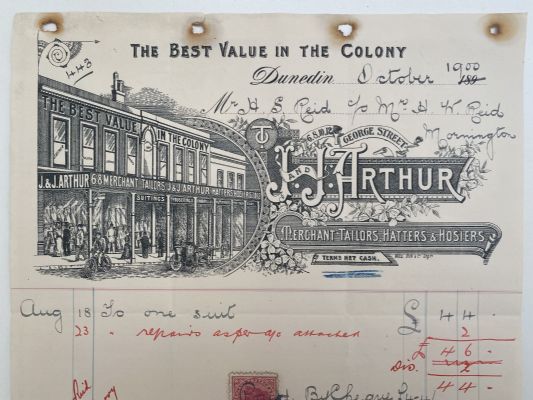 443
THE BEST VALUE IN THE COLONY
Dunedin October 1900
189
Mr H. S. Reid c/o Mrs H. W. Reid
Mornington
THE BEST VALUE IN THE COLONY
J. & J. ARTHUR 6&8 MERCHANT TAILORS J.&J. ARTHUR HATTERS HOSIERS
SUITINGS
6 & 8 GEORGE STREET
J. AND J. ARTHUR
MERCHANT TAILORS, HATTERS & HOSIERS
TERMS NET CASH.
Aug 18 To one suit £ 44 -
23 " repairs as per a/c attached 2
£ 46 -
Dis. 2
44 -
By Cheque